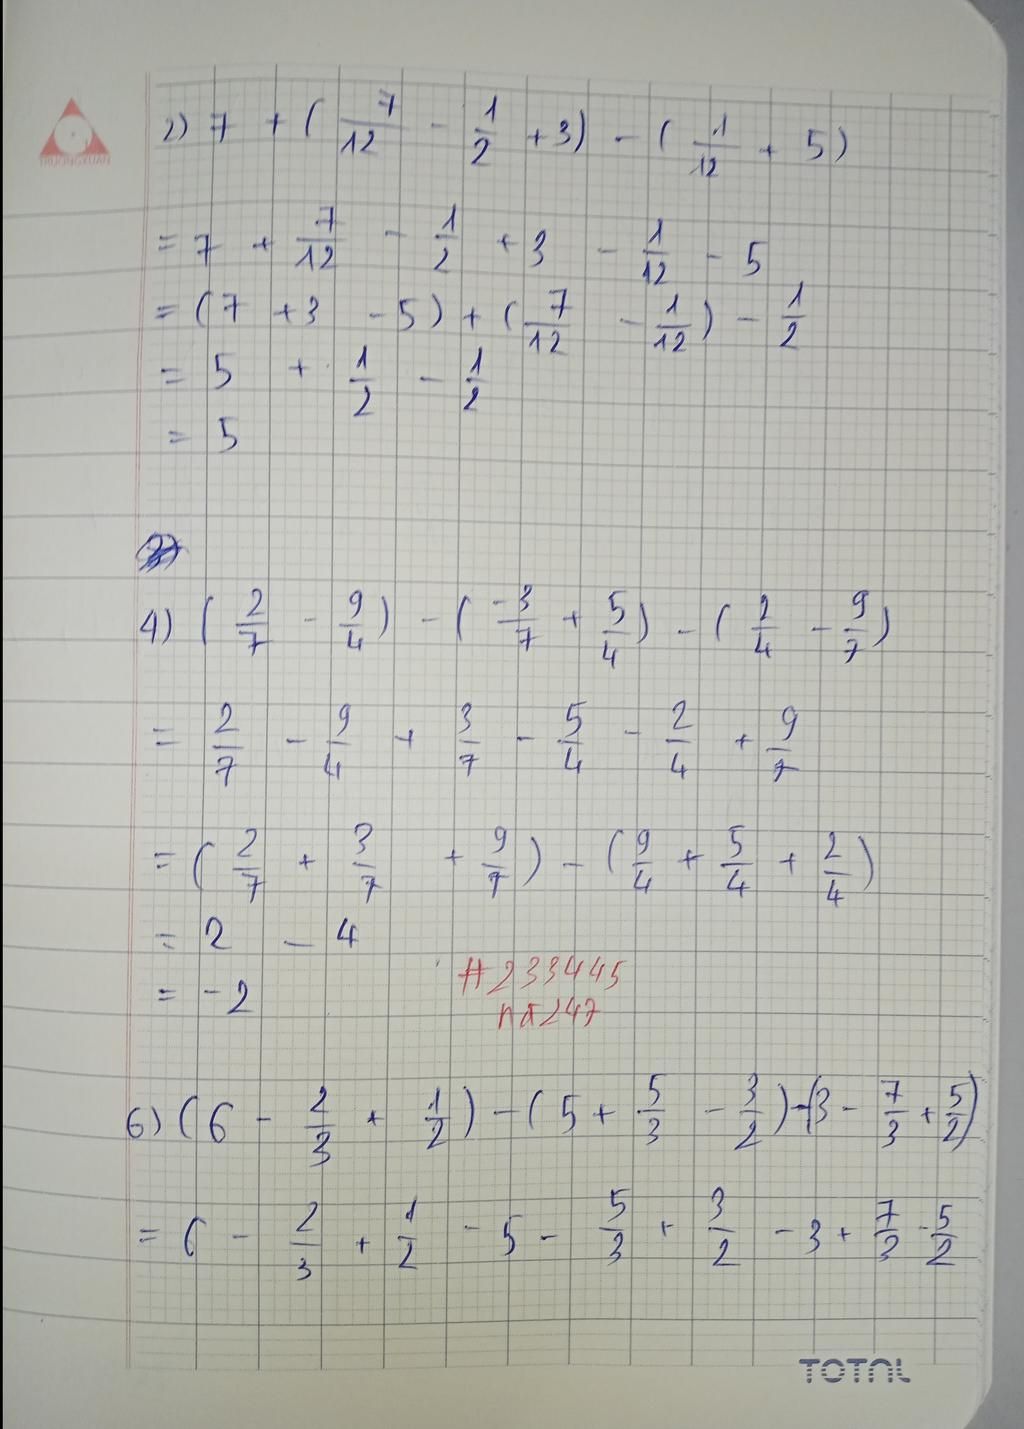 TRUONGXUAN
2) 7 + ( 7/12 - 1/2 + 3) - ( 1/12 + 5)
= 7 + 7/12 - 1/2 + 3 - 1/12 - 5
= (7 + 3 - 5) + ( 7/12 - 1/12 ) - 1/2
= 5 + 1/2 - 1/2
= 5
4) ( 2/7 - 9/4 ) - ( -3/7 + 5/4 ) - ( 2/4 - 9/7 )
= 2/7 - 9/4 + 3/7 - 5/4 - 2/4 + 9/7
= ( 2/7 + 3/7 + 9/7 ) - ( 9/4 + 5/4 + 2/4 )
= 2 - 4
= -2
#233445
6) ( 6 - 2/3 + 1/2 ) - ( 5 + 5/3 - 3/2 ) - ( 3 - 7/3 + 5/2 )
= 6 - 2/3 + 1/2 - 5 - 5/3 + 3/2 - 3 + 7/3 - 5/2
TOTAL